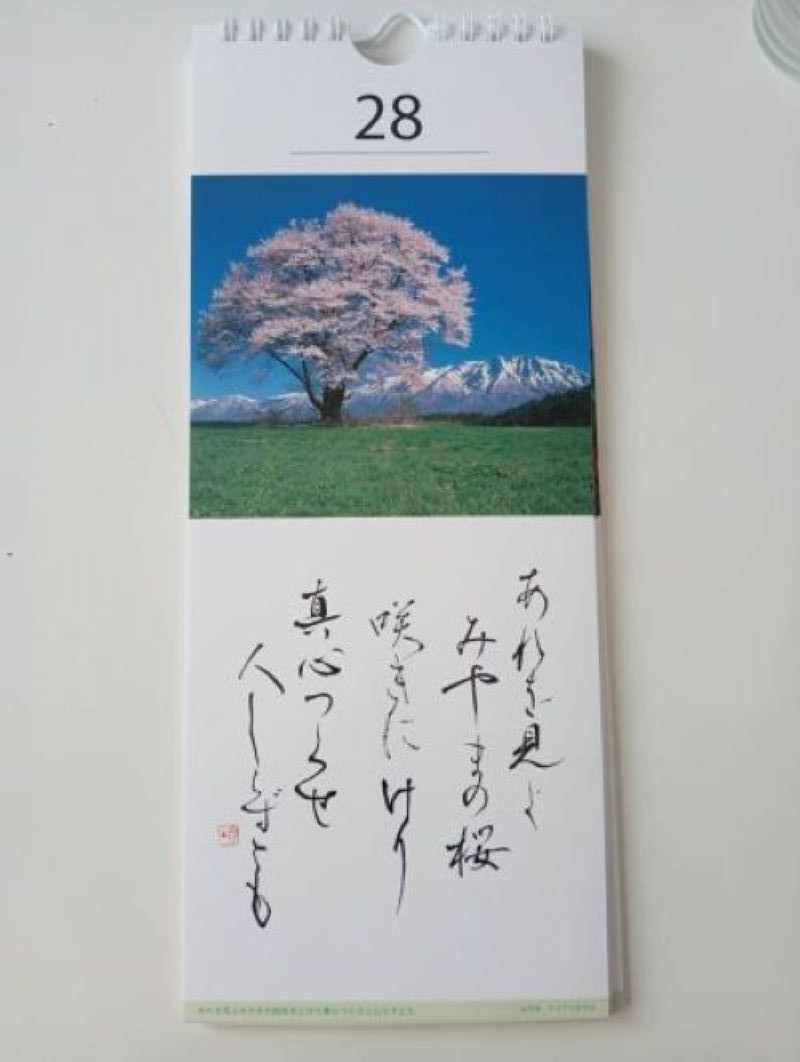 28
あれを見よ
みやまの桜
咲きにけり
真心つくせ
人しらずとも